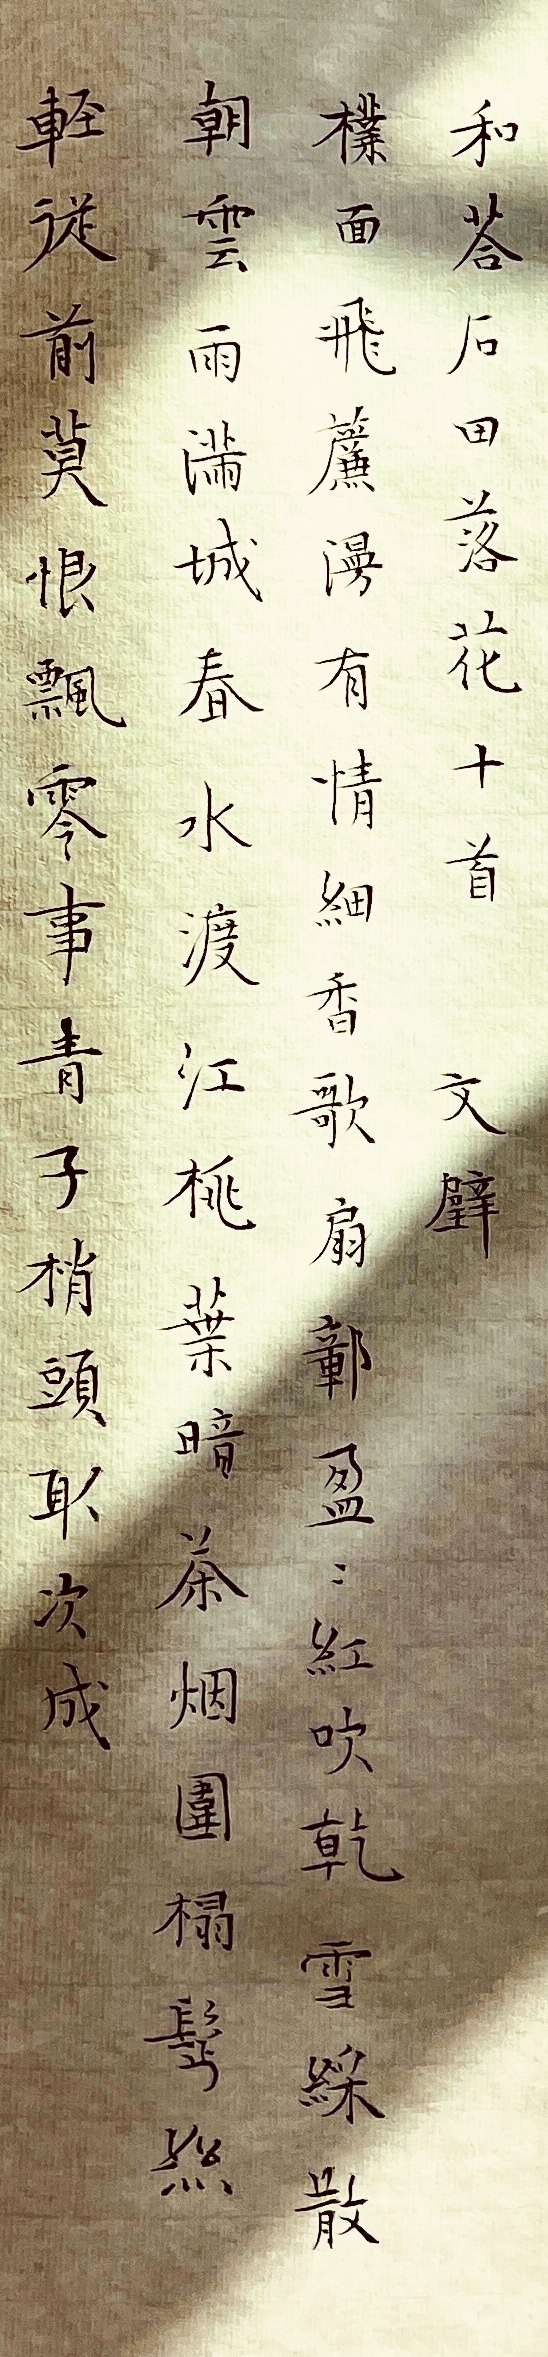 和荅石田落花十首 文壁
樸面飛薕漫有情細香歌扇鄣盈〻紅吹乾雪綵散
朝雲雨滿城春水渡江桃葉暗茶烟圍榻鬢絲
輕從前莫恨飄零事青子梢頭取次成